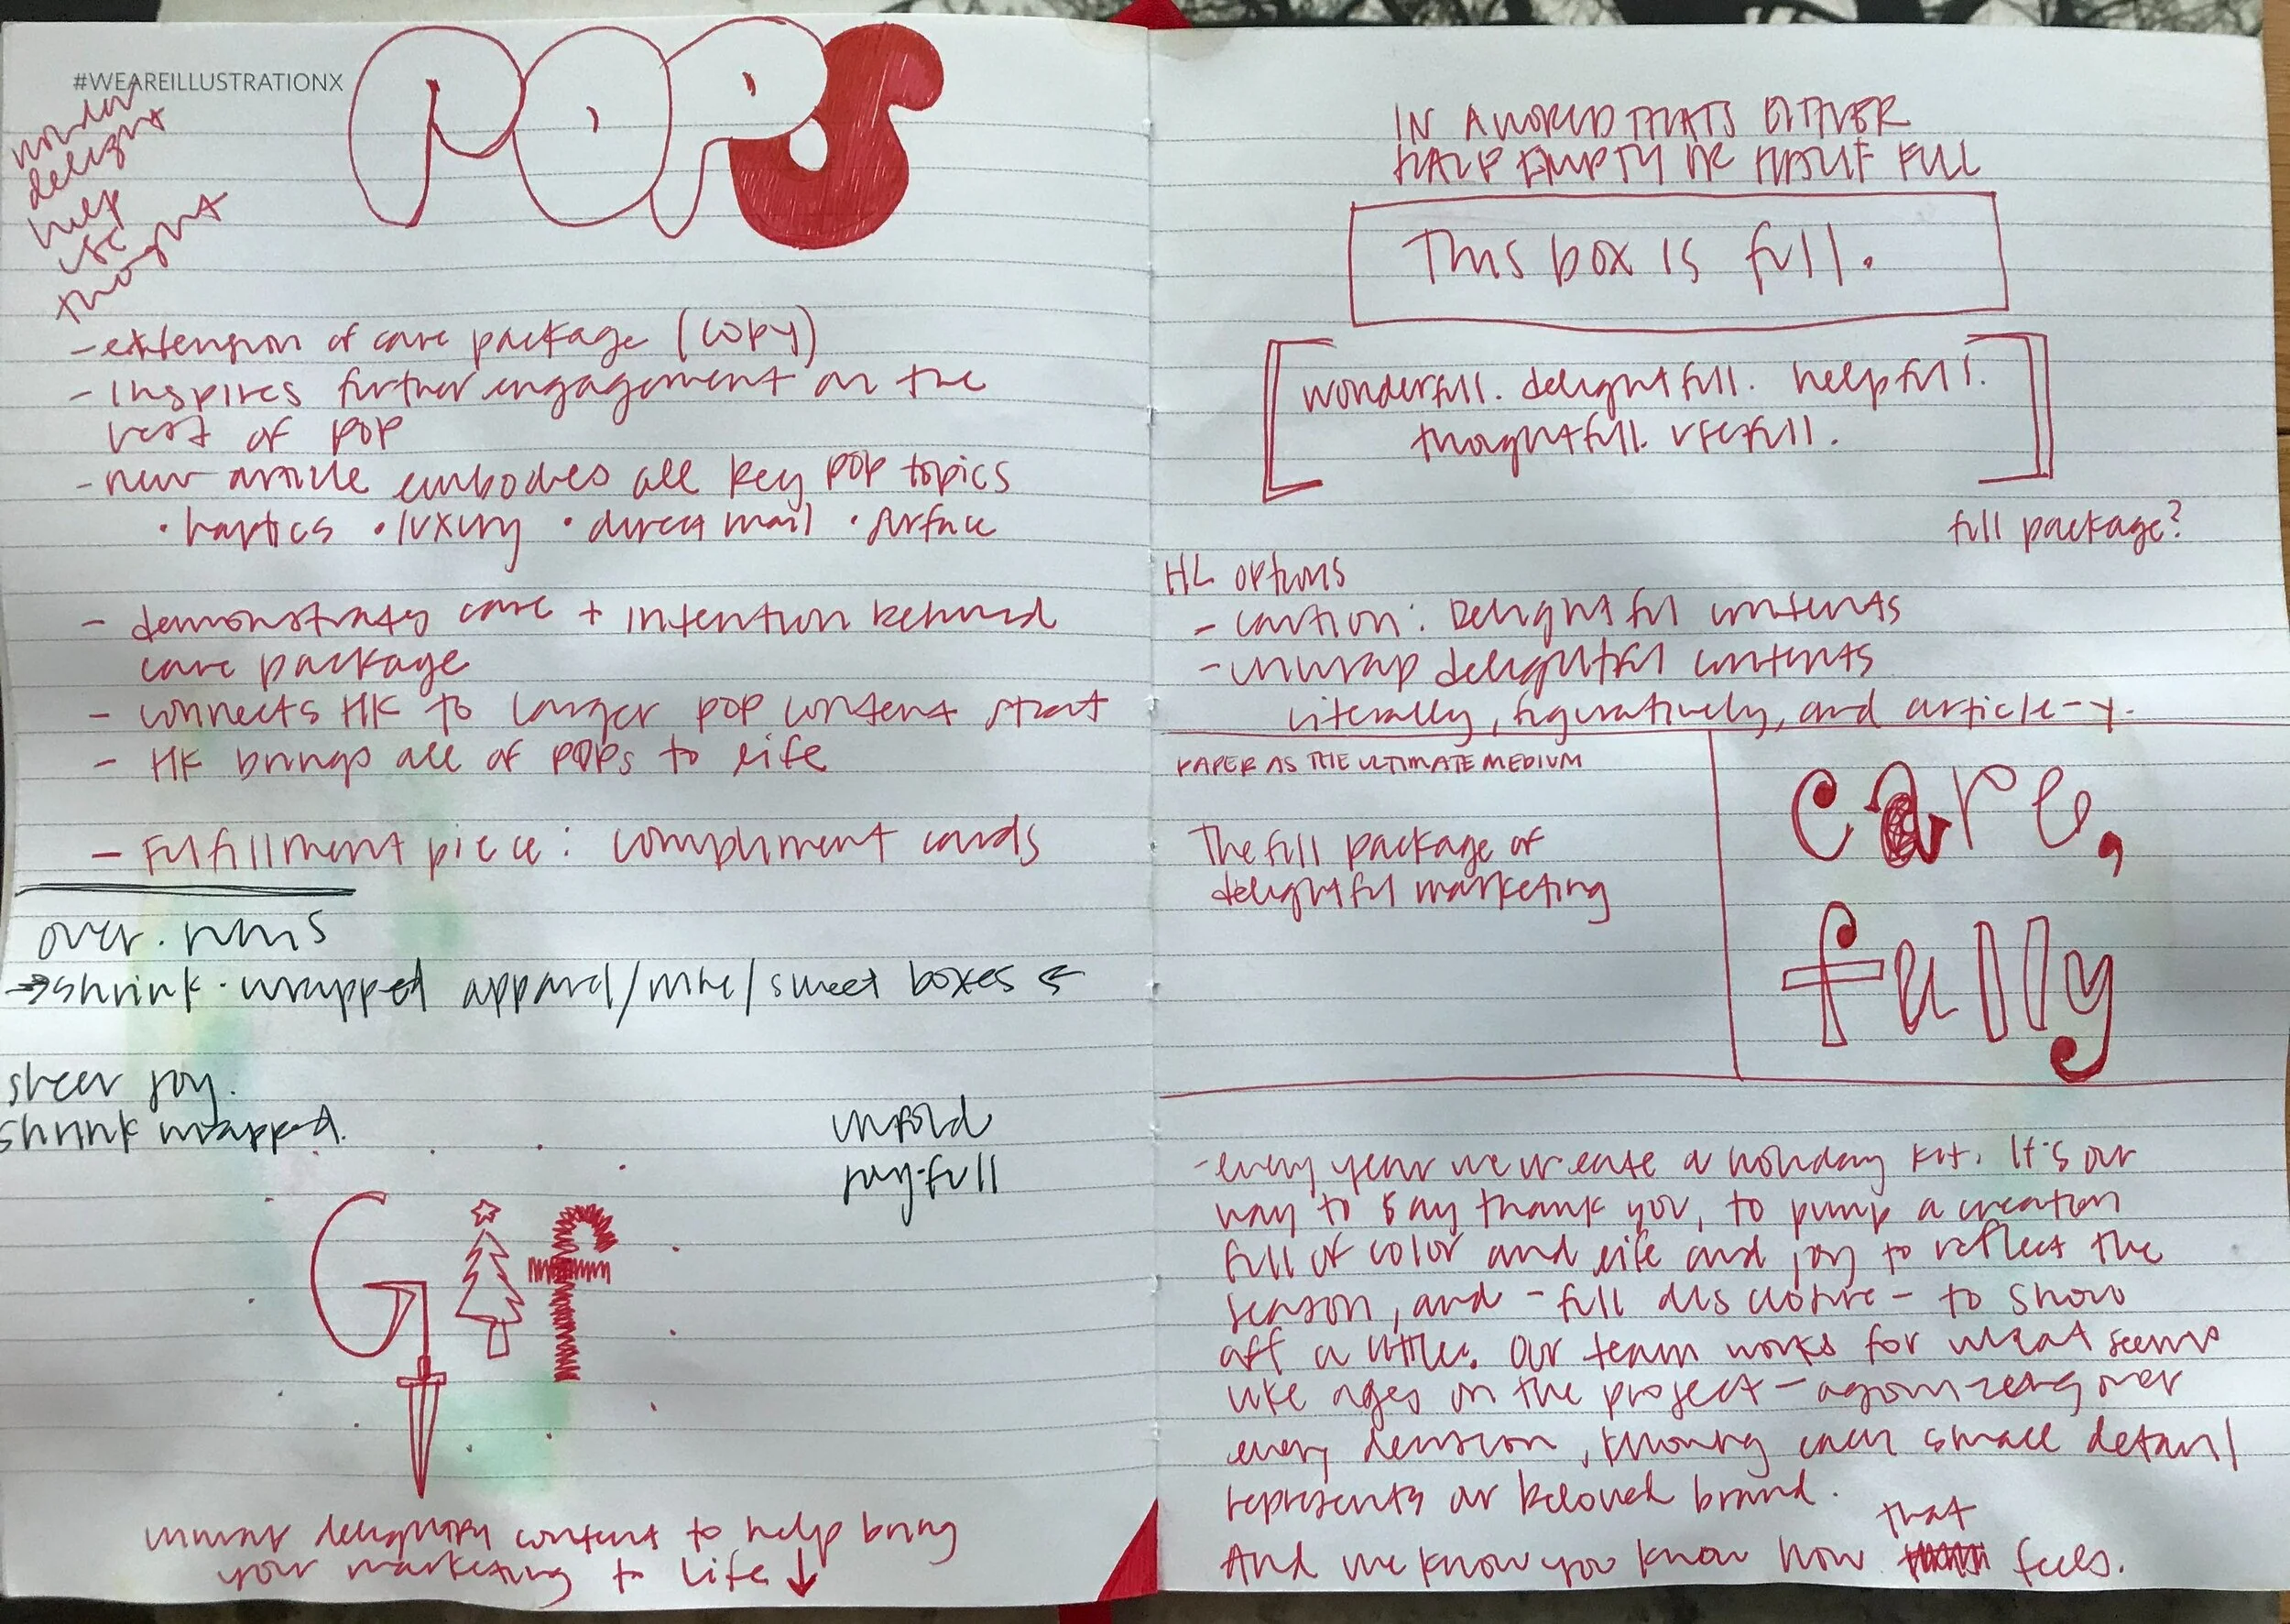 #WEAREILLUSTRATIONX
POPS
wonder
delight
help
use
thought
- extension of care package (copy)
- inspires further engagement on the
rest of POP
- new article embodies all key POP topics
• haptics • luxury • direct mail • surface
- demonstrates care + intention behind
care package
- connects HK to larger POP content strat
- HK brings all of POPs to life
- Fulfillment piece: compliment cards
over.runs
→ shrink.wrapped apparel/mhe/sweet boxes ←
sheer joy.
shrink wrapped.
unfold
joy-full
Gif
unwrap delightful content to help bring
your marketing to life ↓
IN A WORLD THATS EITHER
HALF EMPTY OR HALF FULL
This box is full.
[wonderfull. delightfull. helpfull.
thoughtfull. usefull.]
full package?
HL options
- caution: Delightful contents
- unwrap delightful contents
literally, figuratively, and article-y.
PAPER AS THE ULTIMATE MEDIUM
The full package of
delightful marketing
care,
fully
- every year we create a holiday kit. It's our
way to say thank you, to pump a creation
full of color and life and joy to reflect the
season, and - full disclosure - to show
off a little. Our team works for what seems
like ages on the project - agonizing over
every decision, knowing each small detail
represents our beloved brand.
And we know you know how that feels.